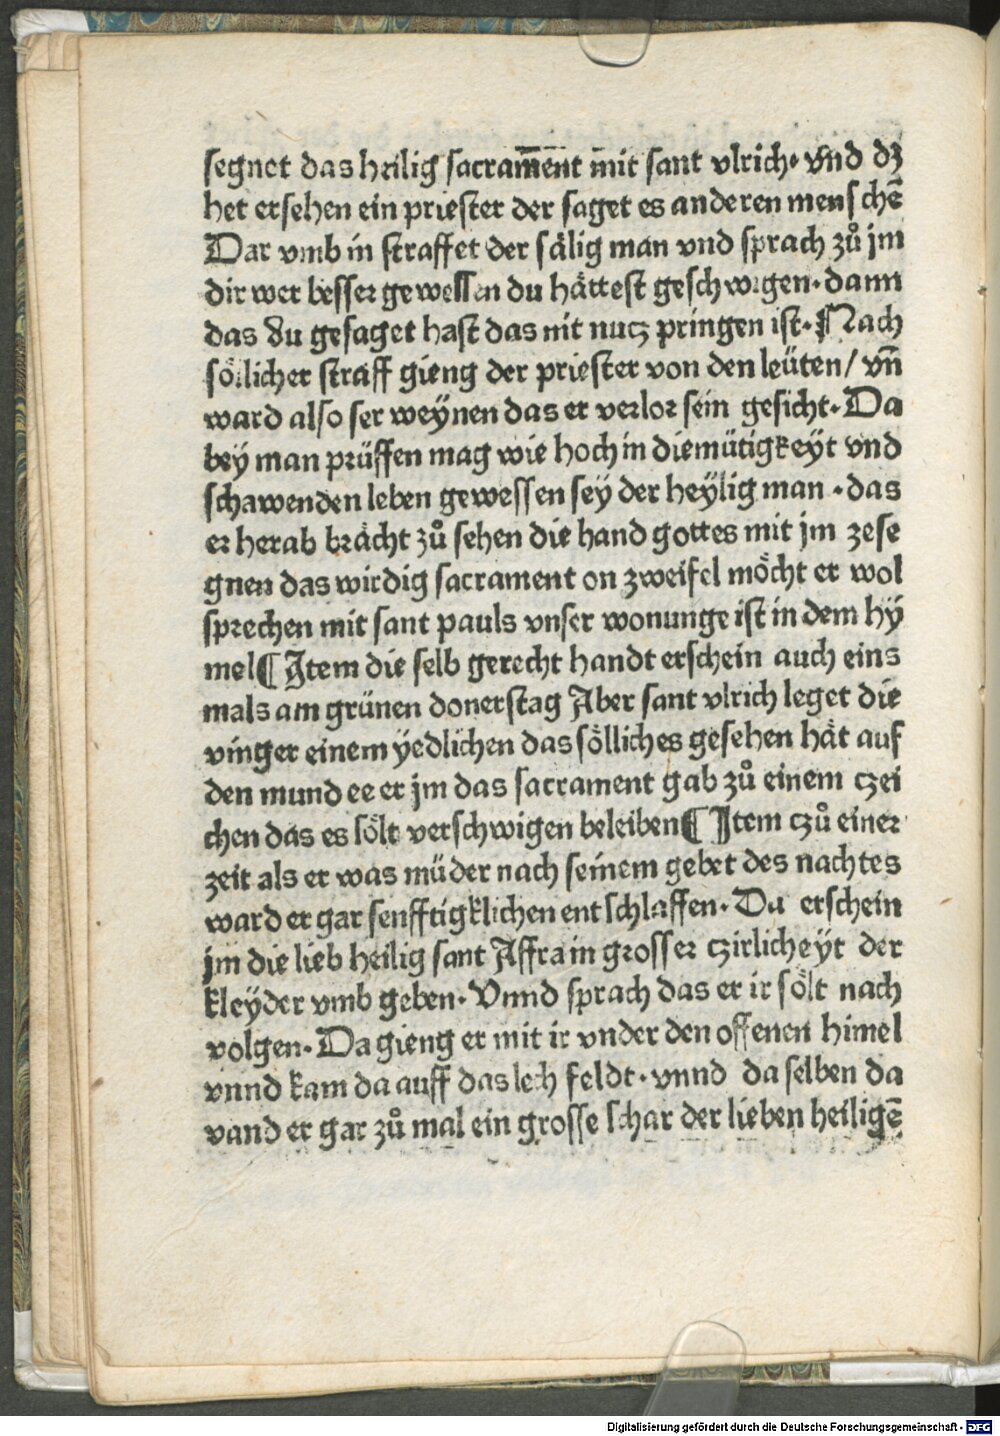 segnet das heilig sacram̄ent mit sant vlrich· vnd dʒ
het ersehen ein priester der saget es anderen menschē
Dar vmb in straffet der sälig man vnd sprach zů jm
dir wer besser gewessen du hättest geschwigen· dann
das du gesaget hast das nit nucz pringen ist· Nach
söllicher straff gieng der priester von den leüten/ vn̄
ward also ser weynen das er verlor sein gesicht· Da
bey man prüffen mag wie hoch in diemütigkeyt vnd
schawenden leben gewessen sey der heylig man · das
er herab brächt zů sehen die hand gottes mit jm zese
gnen das wirdig sacrament on zweifel möcht er wol
sprechen mit sant pauls vnser wonunge ist in dem hy
mel ¶ Item die selb gerecht handt erschein auch eins
mals am grünen donerstag Aber sant vlrich leget die
vinger einem yedlichen das sölliches gesehen hät auf
den mund ee er jm das sacrament gab zů einem czei
chen das es sölt verschwigen beleiben ¶ Item czů einer
zeit als er was müder nach seinem gebet des nachtes
ward er gar senfftigklichen entschlaffen· Da erschein
jm die lieb heilig sant Affra in grosser czirlicheyt der
kleyder vmb geben· Vnnd sprach das er ir sölt nach
volgen· Da gieng er mit ir vnder den offenen himel
vnnd kam da auff das lech feldt· vnnd da selben da
vand er gar zů mal ein grosse schar der lieben heiligē
Digitalisierung gefördert durch die Deutsche Forschungsgemeinschaft - DFG